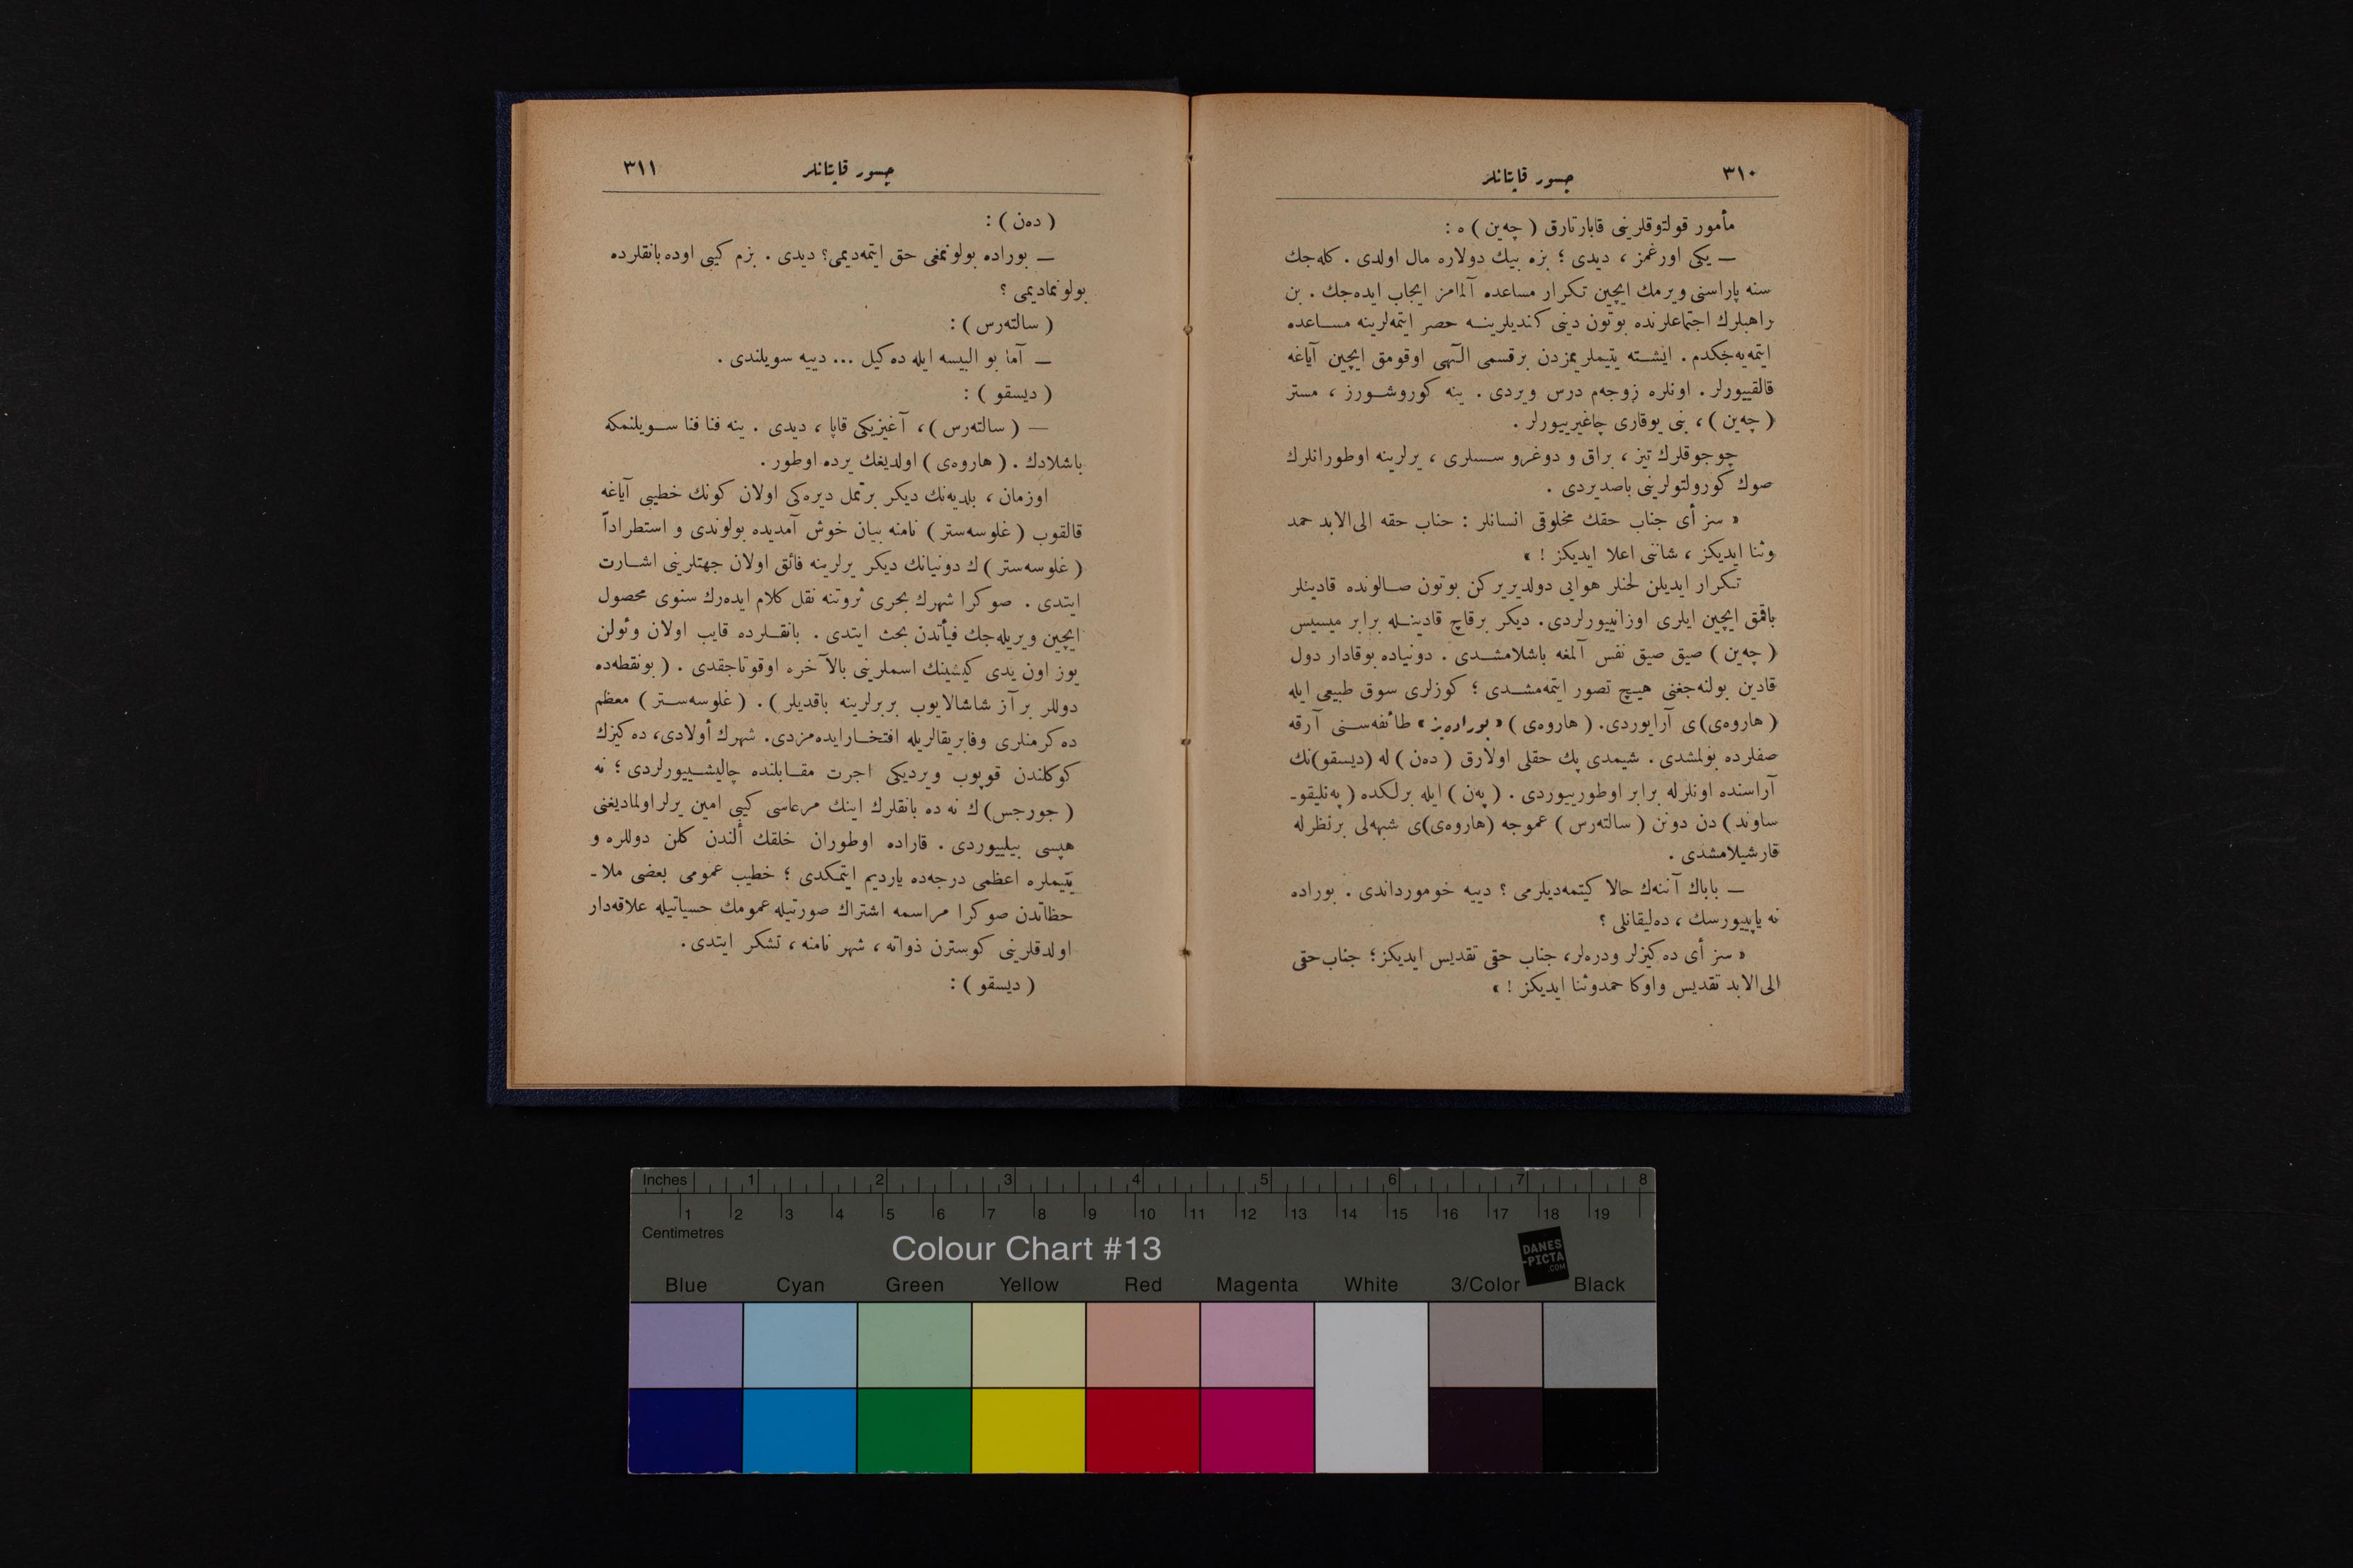 ٣١٠
جسور قاپتانلر
مأمور قولتوقلرینی قابارتارق ( چه‌ین ) ه :
— یکی اورغمز ، دیدی ؛ بزه بیك دولاره مال اولدی . کله‌جك
سنه پاراسنی ویرمك ایچین تکرار مساعده آلمامز ایجاب ایده‌جك . بن
راهبلرك اجتماعلرنده بوتون دینی کندیلرینــه حصر ایتمه‌لرینه مســاعده
ایتمه‌یه‌جکدم . ایشــته یتیملریمزدن برقسمی الٓهی اوقومق ایچین آیاغه
قالقییورلر . اونلره زوجه‌م درس ویردی . ینه کوروشــورز ، مستر
( چه‌ین ) ، بنی یوقاری چاغیرییورلر .
چوجوقلرك تیز ، براق و دوغرو سسلری ، یرلرینه اوطورانلرك
صوك کورولتولرینی باصدیردی .
« سز أی جناب حقك مخلوقی انسانلر : جناب حقه الی‌الابد حمد
وثنا ایدیکز ، شاننی اعلا ایدیکز ! »
تکرار ایدیلن لحنلر هوایی دولدیریرکن بوتون صــالونده قادینلر
باقمق ایچین ایلری اوزانییورلردی . دیکر برقاچ قادینــله برابر میسیس
( چه‌ین ) صیق صیق نفس آلمغه باشلامشــدی . دونیاده بوقادار دول
قادین بولنه‌جغنی هیــچ تصور ایتمه‌مشــدی ؛ کوزلری سوق طبیعی ایله
( هاروه‌ی)ی آرایوردی. ( هاروه‌ی ) « بوراده‌یز » طائفه‌ســنی آرقه
صفلرده بولمشدی . شیمدی پك حقلی اولارق ( ده‌ن ) له (دیسقو)نك
آراسنده اونلرله برابر اوطورییوردی . ( په‌ن ) ایله برلکده ( په‌نلیقو-
ساوند ) دن دونن ( سالته‌رس ) عموجه (هاروه‌ی)ی شبهه‌لی برنظرله
قارشیلامشدی .
— باباك آننه‌ك حالا کیتمه‌دیلرمی ؟ دییه خوموردانـدی . بوراده
نه یاپییورسك ، ده‌لیقانلی ؟
« سز أی ده‌کیزلر ودره‌لر، جناب حقی تقدیس ایدیکز ؛ جناب حقی
الی‌الابد تقدیس واوکا حمدوثنا ایدیکز ! »
جسور قاپتانلر
٣١١
( ده‌ن ) :
— بوراده بولونمغی حق ایتمه‌دیمی؟ دیدی . بزم کیبی اوده بانقلرده
بولونمادیمی ؟
( سالته‌رس ) :
— آما بو البیسه ایله ده‌کیل ... دییه سویلندی .
( دیسقو ) :
— ( سالته‌رس ) ، آغیزیکی قاپا ، دیدی . ینه فنا فنا ســویلنمکه
باشلادك . ( هاروه‌ی ) اولدیغك یرده اوطور .
اوزمان ، بلدیه‌نك دیکر برتمل دیره‌کی اولان کونك خطیبی آیاغه
قالقوب ( غلوسه‌ستر ) نامنه بیان خوش آمدیده بولوندی و استطراداً
( غلوسه‌ستر ) ك دونیانك دیکر یرلرینه فائق اولان جهتلرینی اشــارت
ایتدی . صوکرا شهرك بحری ثروتنه نقل کلام ایده‌رك سنوی محصول
ایچین ویریله‌جك فیأتدن بحث ایتدی . بانقــلرده قایب اولان وئولن
یوز اون یدی کیشینك اسملرینی بالآخره اوقوتاجقدی . ( بونقطه‌ده
دوللر بر آز شاشالایوب بربرلرینه باقدیلر ) . ( غلوسه‌ســتر ) معظم
ده‌کرمنلری وفابریقالریله افتخــارایده‌مزدی. شهرك أولادی، ده‌کیزك
کوکلندن قوپوب ویردیکی اجرت مقــابلنده چالیشــییورلردی ؛ نه
( جورجس) ك نه ده بانقلرك اینك مرعاسی کیبی امین یرلر اولمادیغنی
هپسی بیلییوردی . قاراده اوطوران خلقك ألندن کلن دوللره و
یتیملره اعظمی درجه‌ده یاردیم ایتمکدی ؛ خطیب عمومی بعضی ملا-
حظاتدن صوکرا مراسمه اشتراك صورتیله عمومك حسیاتیله علاقه‌دار
اولدقلرینی کوسترن ذواته ، شهر نامنه ، تشکر ایتدی .
( دیسقو ) :
Inches 1 2 3 4 5 6 7 8
1 2 3 4 5 6 7 8 9 10 11 12 13 14 15 16 17 18 19
Centimetres
Colour Chart #13
DANES
-PICTA
.COM
Blue Cyan Green Yellow Red Magenta White 3/Color Black